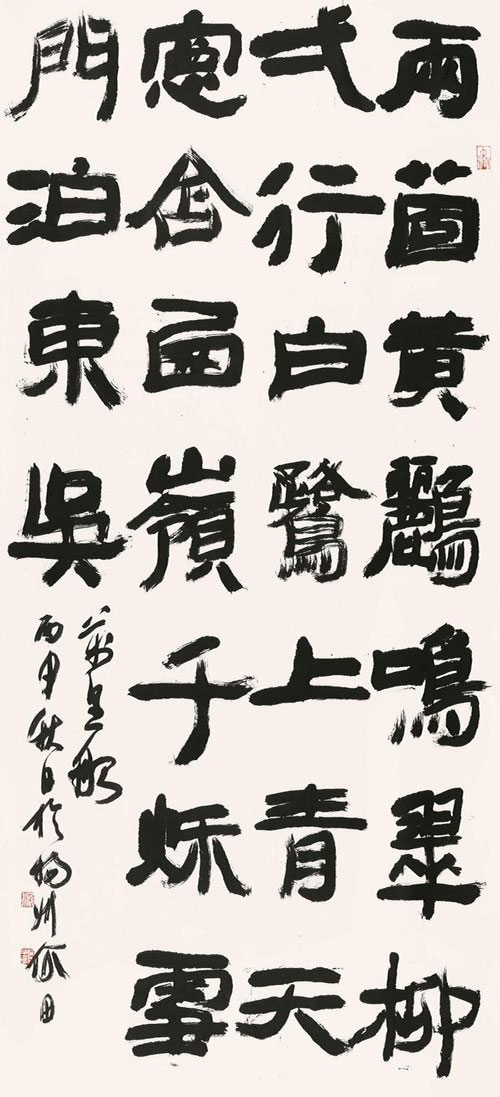 兩箇黃鸝鳴翠柳
弌行白鷺上青天
窓含西嶺千秋雪
門泊東吳
萬里船
丙申秋日於揚州